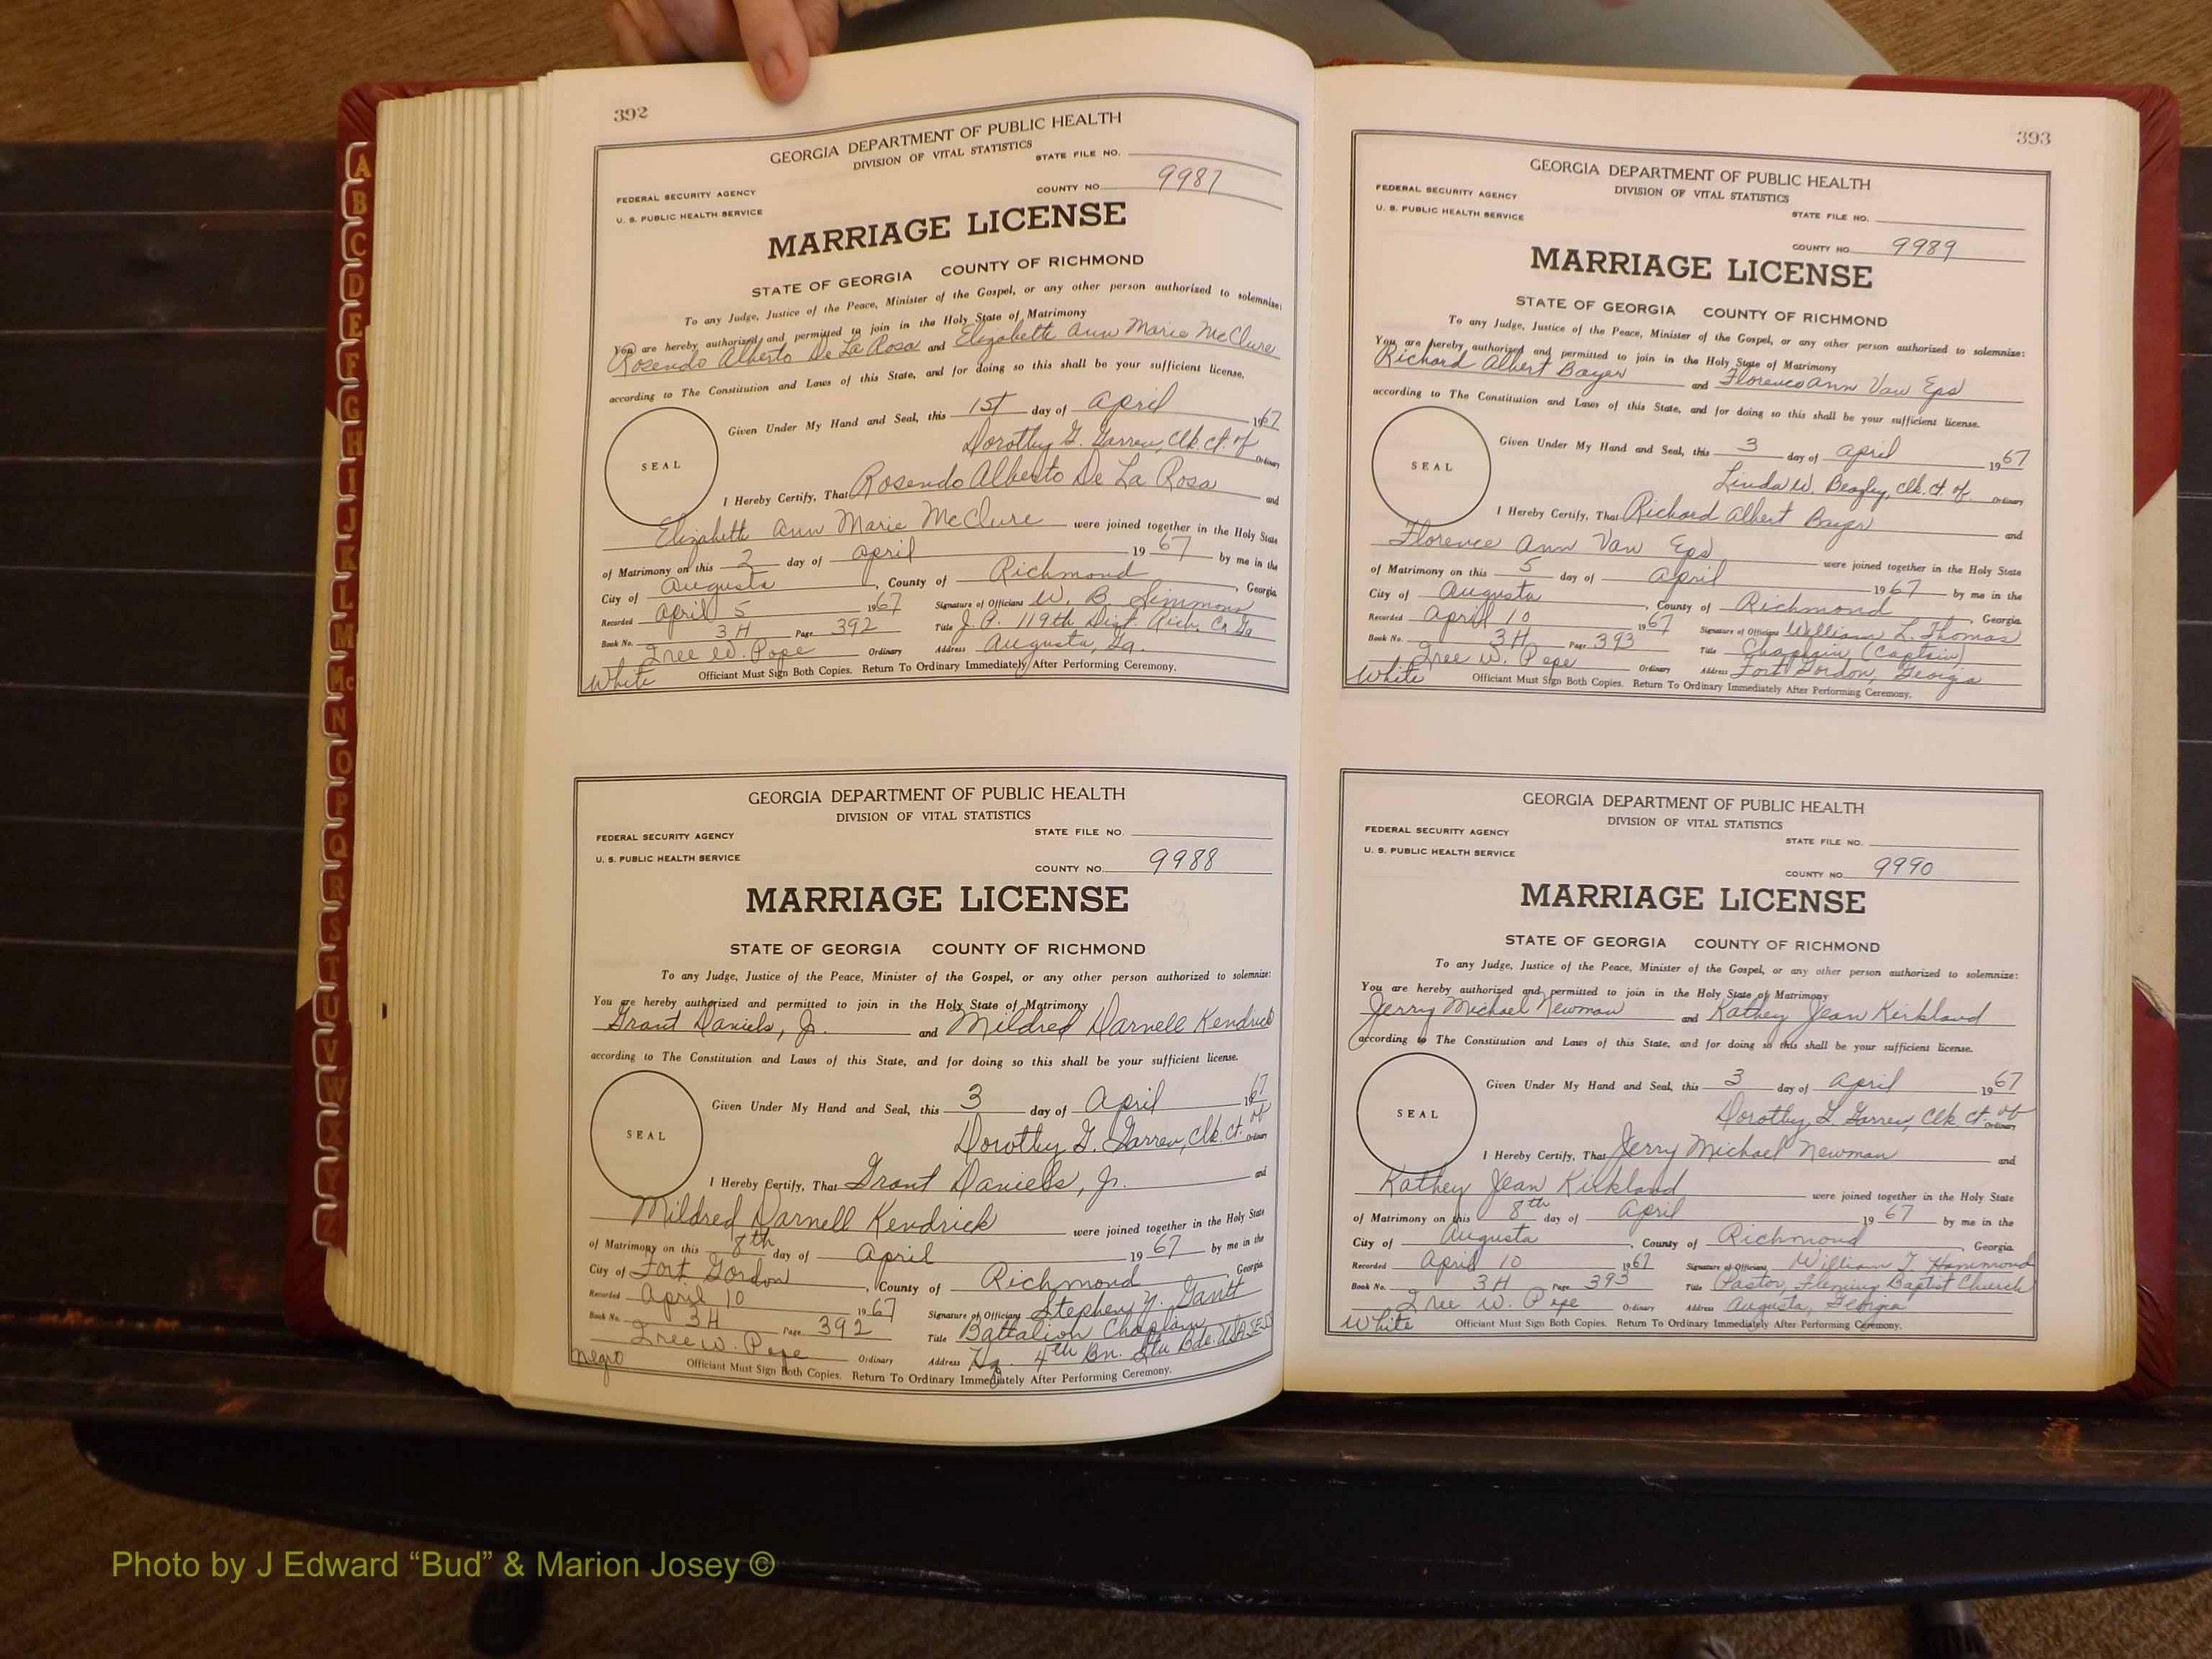 392
GEORGIA DEPARTMENT OF PUBLIC HEALTH
DIVISION OF VITAL STATISTICS
STATE FILE NO.
FEDERAL SECURITY AGENCY
U. S. PUBLIC HEALTH SERVICE
COUNTY NO. 9987
MARRIAGE LICENSE
STATE OF GEORGIA COUNTY OF RICHMOND
To any Judge, Justice of the Peace, Minister of the Gospel, or any other person authorized to solemnize:
You are hereby authorized and permitted to join in the Holy State of Matrimony
Rosendo Alberto De La Rosa and Elizabeth Ann Marie McClure
according to The Constitution and Laws of this State, and for doing so this shall be your sufficient license.
SEAL
Given Under My Hand and Seal, this 1st day of April 1967
Dorothy G. Garren, Clk. Ct. of Ordinary
I Hereby Certify, That Rosendo Alberto De La Rosa and
Elizabeth Ann Marie McClure were joined together in the Holy State
of Matrimony on this 2 day of April 19 67 by me in the
City of Augusta, County of Richmond, Georgia
Recorded April 5 1967 Signature of Officiant W. B. Simmons
Book No. 3H Page 392 Title J. P. 119th Dist. Rich. Co Ga
Tree W. Pope Ordinary Address Augusta, Ga.
White Officiant Must Sign Both Copies. Return To Ordinary Immediately After Performing Ceremony.
GEORGIA DEPARTMENT OF PUBLIC HEALTH
DIVISION OF VITAL STATISTICS
STATE FILE NO.
FEDERAL SECURITY AGENCY
U. S. PUBLIC HEALTH SERVICE
COUNTY NO. 9988
MARRIAGE LICENSE
STATE OF GEORGIA COUNTY OF RICHMOND
To any Judge, Justice of the Peace, Minister of the Gospel, or any other person authorized to solemnize:
You are hereby authorized and permitted to join in the Holy State of Matrimony
Grant Daniels, Jr. and Mildred Darnell Kendrick
according to The Constitution and Laws of this State, and for doing so this shall be your sufficient license.
SEAL
Given Under My Hand and Seal, this 3 day of April 1967
Dorothy G. Garren, Clk. Ct. of Ordinary
I Hereby Certify, That Grant Daniels, Jr. and
Mildred Darnell Kendrick were joined together in the Holy State
of Matrimony on this 8th day of April 19 67 by me in the
City of Fort Gordon, County of Richmond Georgia
Recorded April 10 1967 Signature of Officiant Stephen Y. Gantt
Book No. 3H Page 392 Title Battalion Chaplain
Tree W. Pope Ordinary Address Hq. 4th Bn. Stu Bde. USASESS
Negro Officiant Must Sign Both Copies. Return To Ordinary Immediately After Performing Ceremony.
393
GEORGIA DEPARTMENT OF PUBLIC HEALTH
DIVISION OF VITAL STATISTICS
FEDERAL SECURITY AGENCY
U. S. PUBLIC HEALTH SERVICE
STATE FILE NO.
COUNTY NO. 9989
MARRIAGE LICENSE
STATE OF GEORGIA COUNTY OF RICHMOND
To any Judge, Justice of the Peace, Minister of the Gospel, or any other person authorized to solemnize:
You are hereby authorized and permitted to join in the Holy State of Matrimony
Richard Albert Bayer and Florence Ann Van Eps
according to The Constitution and Laws of this State, and for doing so this shall be your sufficient license.
SEAL
Given Under My Hand and Seal, this 3 day of April 1967
Linda W. Beazley, Clk. Ct. of Ordinary
I Hereby Certify, That Richard Albert Bayer and
Florence Ann Van Eps were joined together in the Holy State
of Matrimony on this 5 day of April 19 67 by me in the
City of Augusta, County of Richmond, Georgia
Recorded April 10 1967 Signature of Officiant William L. Thomas
Book No. 3H Page 393 Title Chaplain (Captain)
Tree W. Pope Ordinary Address Fort Gordon, Georgia
White Officiant Must Sign Both Copies. Return To Ordinary Immediately After Performing Ceremony.
GEORGIA DEPARTMENT OF PUBLIC HEALTH
DIVISION OF VITAL STATISTICS
FEDERAL SECURITY AGENCY
U. S. PUBLIC HEALTH SERVICE
STATE FILE NO.
COUNTY NO. 9990
MARRIAGE LICENSE
STATE OF GEORGIA COUNTY OF RICHMOND
To any Judge, Justice of the Peace, Minister of the Gospel, or any other person authorized to solemnize:
You are hereby authorized and permitted to join in the Holy State of Matrimony
Jerry Michael Newman and Kathey Jean Kirkland
according to The Constitution and Laws of this State, and for doing so this shall be your sufficient license.
SEAL
Given Under My Hand and Seal, this 3 day of April 1967
Dorothy G. Garren, Clk Ct. of Ordinary
I Hereby Certify, That Jerry Michael Newman and
Kathey Jean Kirkland were joined together in the Holy State
of Matrimony on this 8th day of April 19 67 by me in the
City of Augusta, County of Richmond, Georgia
Recorded April 10 1967 Signature of Officiant William T. Hammond
Book No. 3H Page 393 Title Pastor, Fleming Baptist Church
Tree W. Pope Ordinary Address Augusta, Georgia
White Officiant Must Sign Both Copies. Return To Ordinary Immediately After Performing Ceremony.
A
B
C
D
E
F
G
H
I
J
K
L
M
Mc
N
O
P
Q
R
S
T
U
V
W
X
Y
Z
Photo by J Edward “Bud” & Marion Josey ©